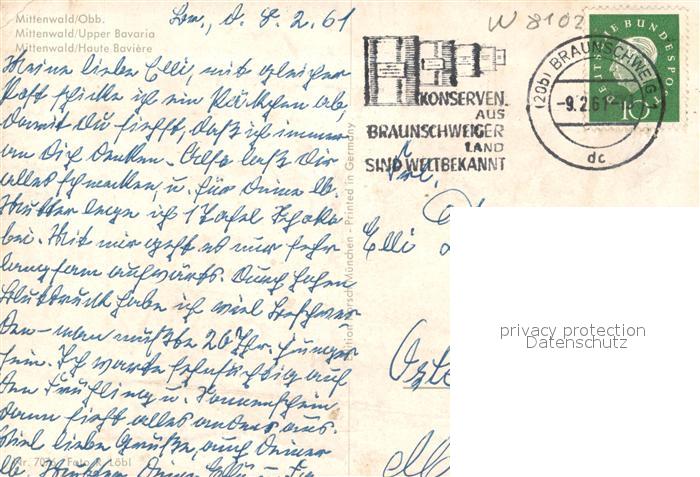 Mittenwald/Obb.
Mittenwald/Upper Bavaria
Mittenwald/Haute Bavière
d. 8. 2. 61
Meine liebe Elli, mit gleicher
Post schicke ich ein Päckchen ab,
damit Du siehst, daß ich immer
an Dich denke. Also laß Dir
alles schmecken, u. für Deine lb.
Mutter lege ich 1 Tafel Schoko
bei. Mit mir geht es nur sehr
langsam aufwärts. Durch hohen
Blutdruck habe ich viel Beschwer
den – man müßte 20 Jhr. jünger
sein. Ich warte sehnsüchtig auf
den Frühling u. Sonnenschein
dann sieht alles anders aus.
Viel liebe Grüße, auch Deiner
lb. Mutter, Deine
Nr. 707 Foto R. Löbl
München - Printed in Germany
W 8102
KONSERVEN
AUS
BRAUNSCHWEIGER
LAND
SIND WELTBEKANNT
(20b) BRAUNSCHWEIG
-9.2.61
dc
DEUTSCHE BUNDESPOST
10
Frl.
Elli
privacy protection
Datenschutz